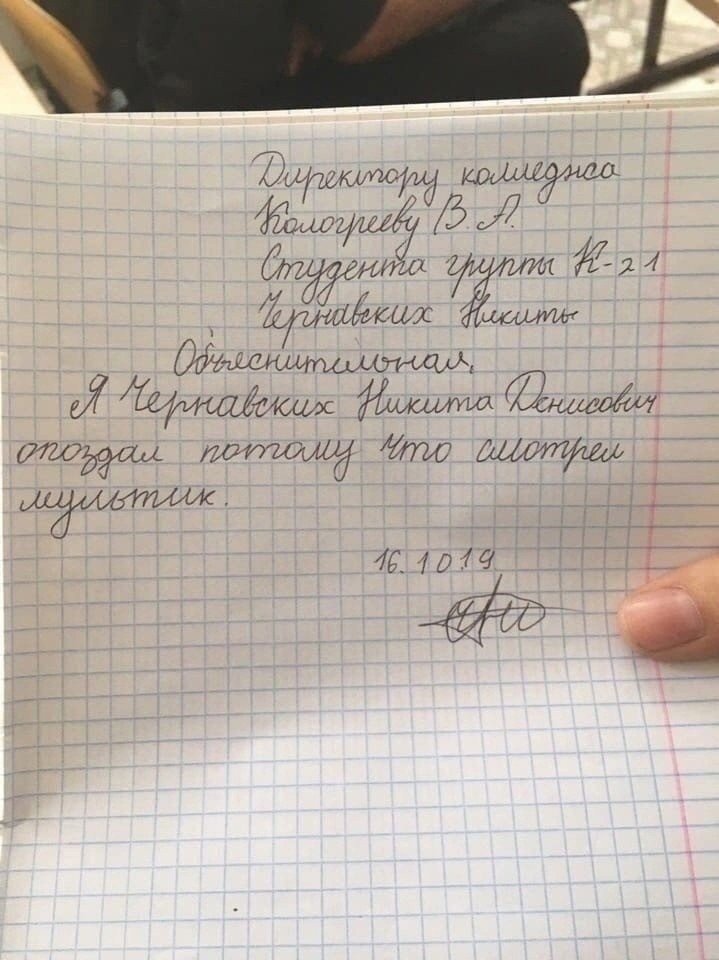 Директору колледжа
Кологрееву В.А.
Студента группы К-21
Чернавских Никиты
Объяснительная.
Я Чернавских Никита Денисович
опоздал потому что смотрел
мультик.
16.10.19